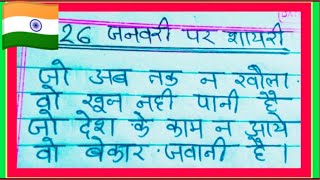 26 जनवरी पर शायरी
जो अब तक न खौला
वो खून नही पानी है
जो देश के काम न आये
वो बेकार जवानी है।